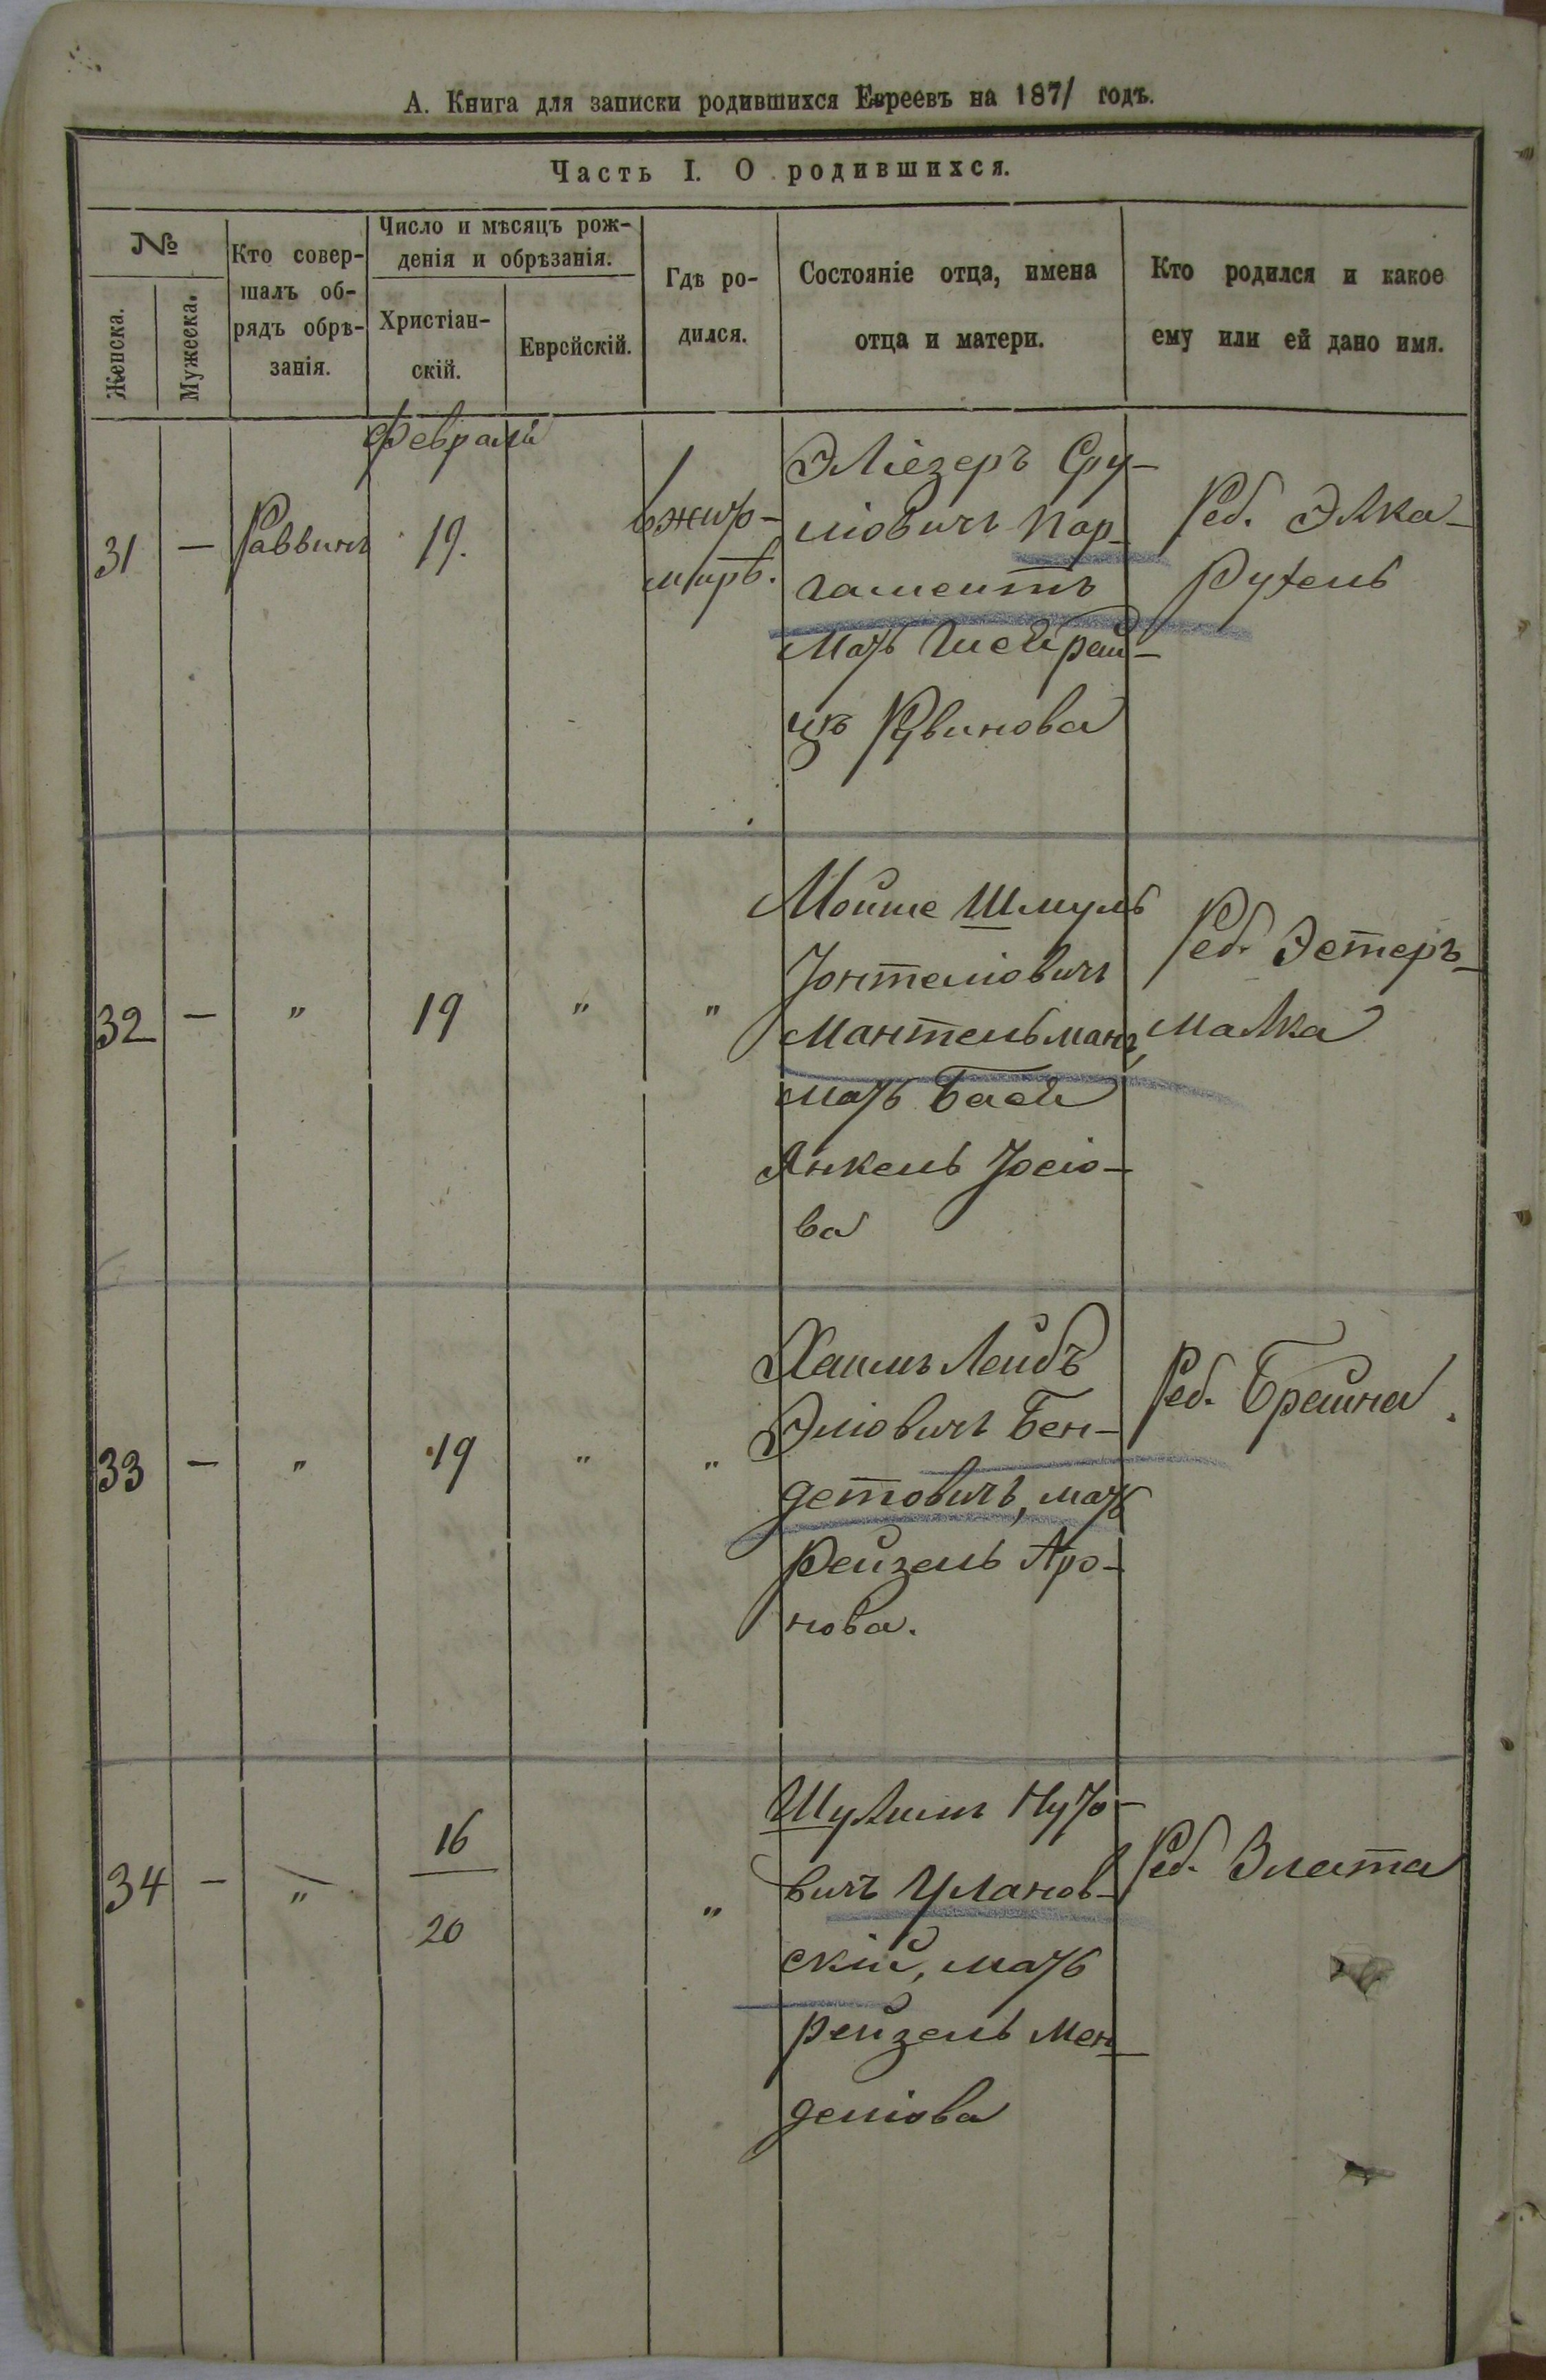 А. Книга для записки родившихся Евреевъ на 1871 годъ.
Часть I. О родившихся.
№
Женска.
Мужеска.
Кто совер-
шалъ об-
рядъ обрѣ-
занія.
Число и мѣсяцъ рож-
денія и обрѣзанія.
Христіан-
скій.
Еврейскій.
Гдѣ ро-
дился.
Состояніе отца, имена
отца и матери.
Кто родился и какое
ему или ей дано имя.
Февраля
31
—
Раввинъ
19.
въ Жито-
мирѣ.
Эліезеръ Сру-
ліовичъ Пар-
гаментъ
мать
Рувинова
Реб. Элка-
Рухель
32
—
"
19
"
"
Мойше Шмуль
Іонтеліовичъ
Мантельманъ,
мать Бася
Янкель Іосіо-
ва
Реб. Эстеръ-
Малка
33
—
"
19
"
"
Хаимъ Лейбъ
Эліовичъ Бен-
детовичъ, мать
Рейзель Аро-
нова.
Реб. Брайна.
34
—
"
16
20
"
Шулимъ Нухо-
вичъ Уланов-
скій, мать
Рейзель Мен-
деліова
Реб. Злата